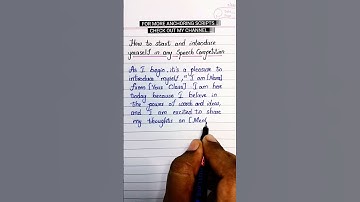 FOR MORE ANCHORING SCRIPTS,
CHECK OUT MY CHANNEL...
How to start and introduce
yourself in any Speech Competition
As I begin, it's a pleasure to
introduce myself, "I am [Name]
from [Your Class]. I am here
today because I believe in
the power of words and ideas,
and I am excited to share
my thoughts on [Men